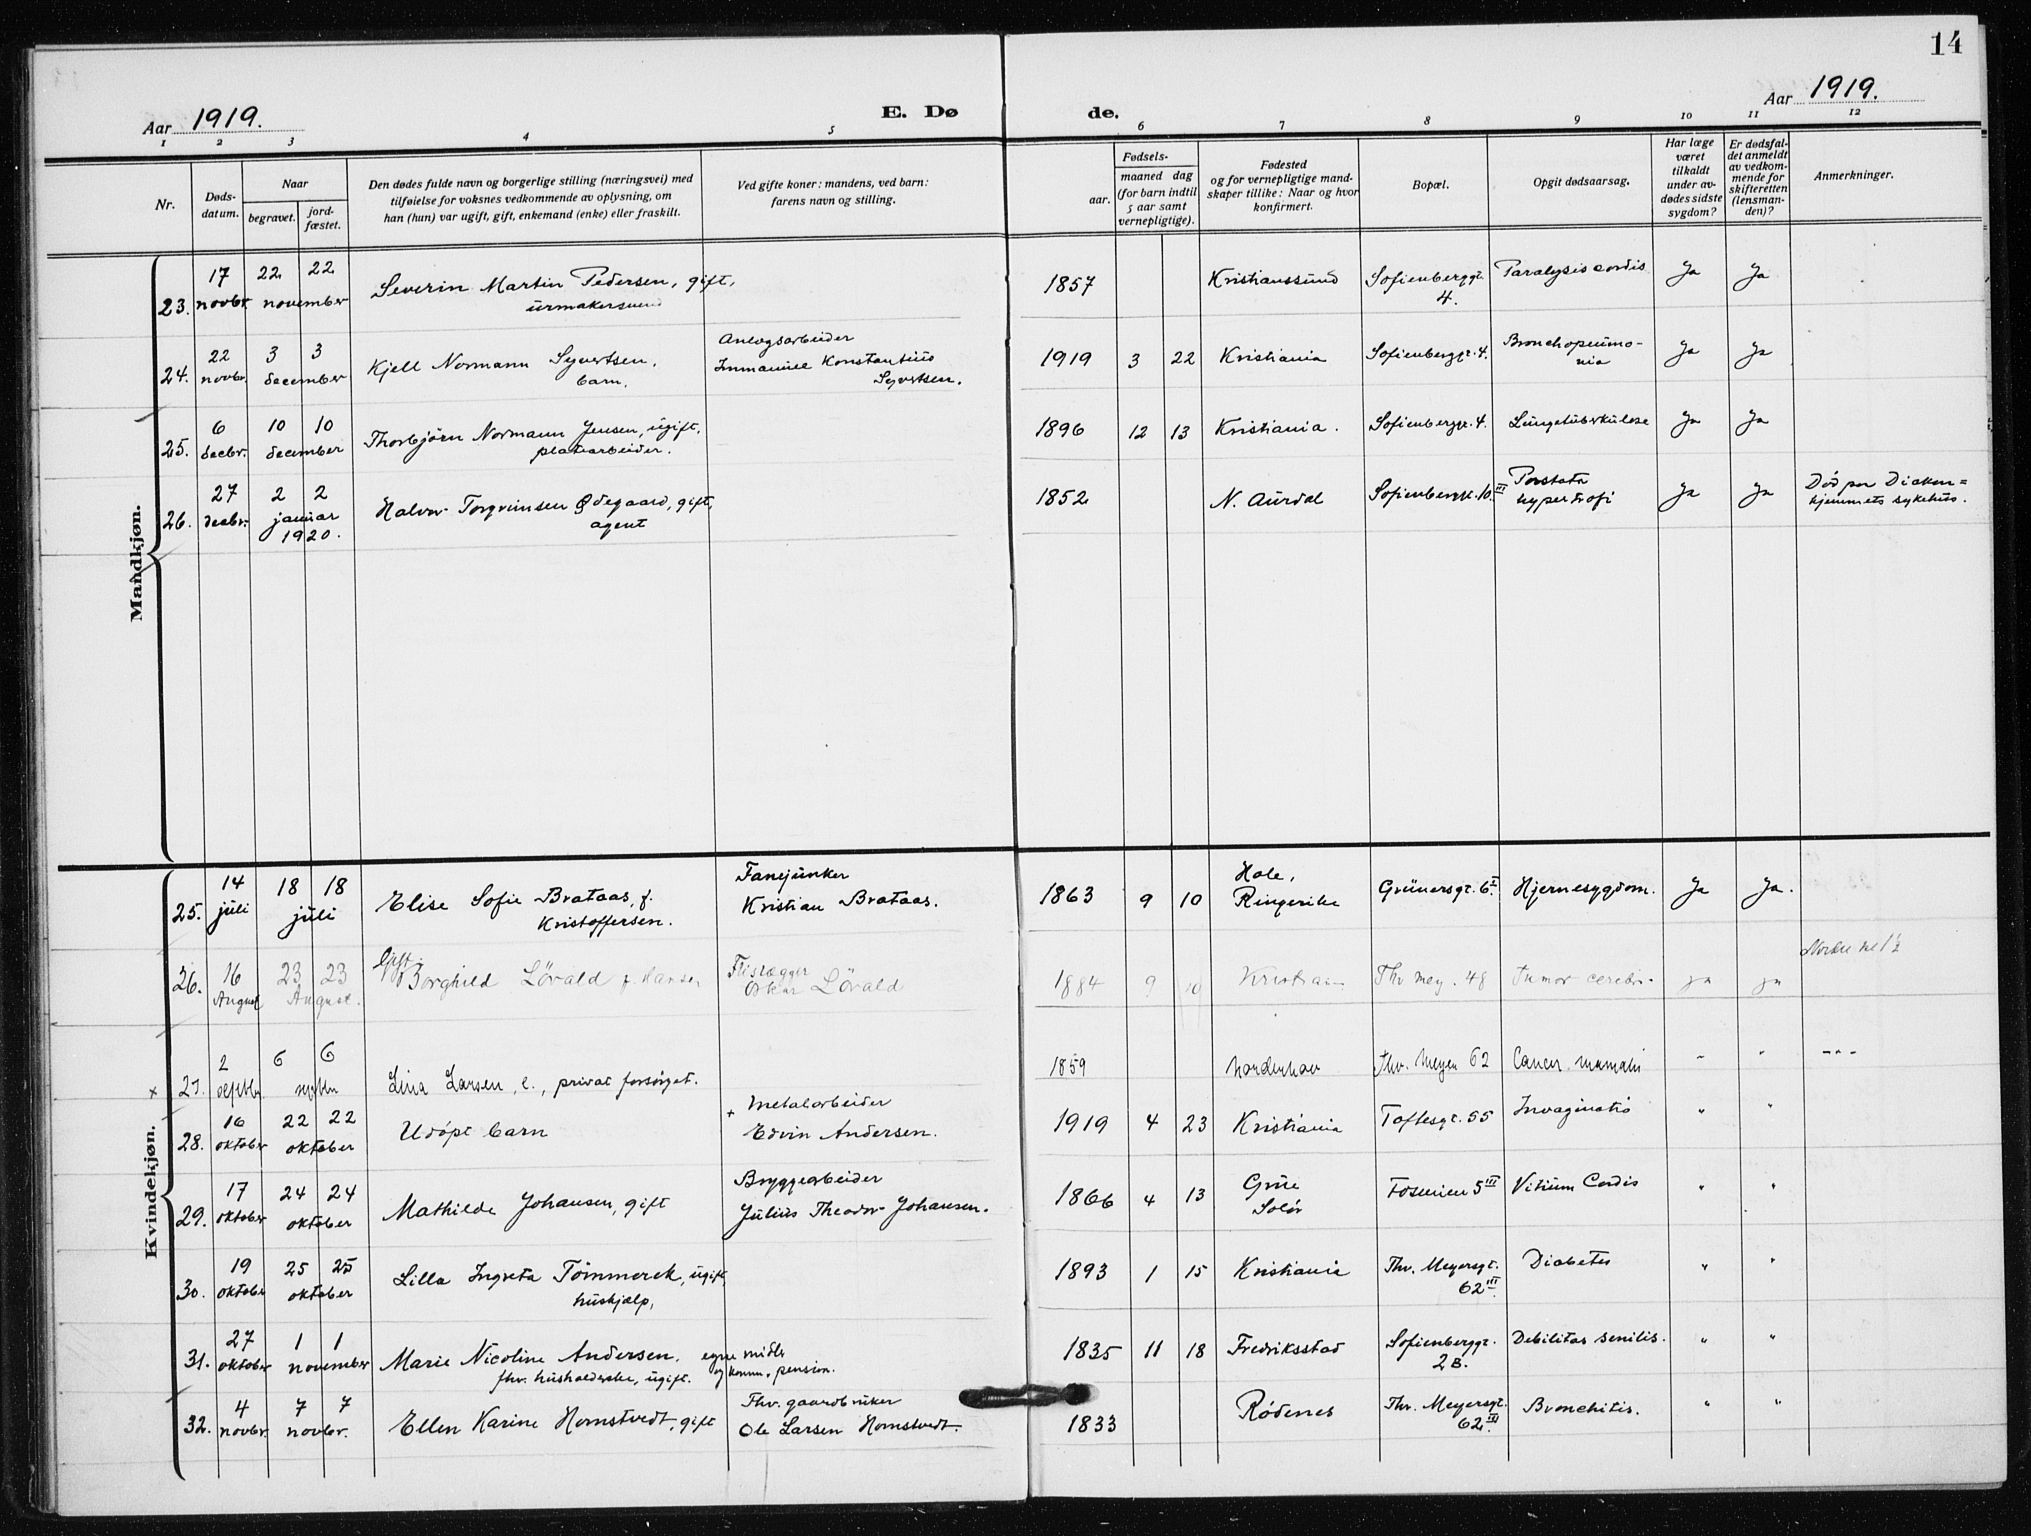 14
Aar 1919.
E. Døde.
Aar 1919.
1 2 3 4 5 6 7 8 9 10 11 12
Nr.
Døds-
datum.
Naar
begravet.
jord-
fæstet.
Den dødes fulde navn og borgerlige stilling (næringsvei) med
tilføielse for voksnes vedkommende av oplysning, om
han (hun) var ugift, gift, enkemand (enke) eller fraskilt.
Ved gifte koner: mandens, ved barn:
farens navn og stilling.
Fødsels-
aar.
maaned dag
(for barn indtil
5 aar samt
vernepligtige).
Fødested
og for vernepligtige mand-
skaper tillike: Naar og hvor
konfirmert.
Bopæl.
Opgit dødsaarsag.
Har læge
været
tilkaldt
under av-
dødes sidste
sygdom?
Er dødsfal-
det anmeldt
av vedkom-
mende for
skifteretten
(lensman-
den)?
Anmerkninger.
Mandkjøn.
23. 17 novbr. 22 22 november Severin Martin Pedersen, gift, urmakersvend 1857 Kristianssund Sofienberggt. 4. Paralysis cordis Ja Ja
24. 22 novbr. 3 3 december Kjell Normann Syvertsen, barn. Anlægsarbeider Immanuel Konstantius Syvertsen. 1919 3 22 Kristiania Sofienberggt. 4. Bronchopneumo-nia Ja Ja
25. 6 decbr. 10 10 december Thorbjörn Normann Jensen, ugift, platearbeider. 1896 12 13 Kristiania. Sofienberggt. 4. Lungetuberkulose Ja Ja
26. 27 decbr. 2 2 januar 1920. Halvor Torgrimsen Ødegaard, gift, agent 1852 N. Aurdal Sofienberggt. 10 III Porstata hypertrofi Ja Ja Död paa Diakon=hjemmets sykehus.
Kvindekjøn.
25. 14 juli 18 18 juli Elise Sofie Brataas, f. Kristoffersen. Fanejunker Kristian Brataas. 1863 9 10 Hole, Ringerike Grünersgt. 6 I Hjernesygdom. Ja Ja.
26. 16 August 23 23 August. Gift Borghild Lövald f. Hansen Flislægger Oskar Lövald 1884 9 10 Kristiania Thv Mey. 48 Tumor cerebri ja ja Nordre kl 1½
x 27. 2 septbr. 6 6 septbr Lina Larsen, e., privat forsörget. 1859 Norderhov Thv. Meyer 62 Cancer mamalis " " " " "
28. 16 oktober 22 22 oktober Udöpt barn + Metalarbeider Edvin Andersen. 1919 4 23 Kristiania Toftesgt. 55 Invaginatio " "
29. 17 oktober 24 24 oktober Mathilde Johansen, gift Bryggearbeider Julius Theodor Johansen. 1866 4 13 Grue Solör Fossveien 5 III Vitium Cordis " "
30. 19 oktober 25 25 oktober Lilla Ingreta Tömmerek, ugift, hushjælp, 1893 1 15 Kristiania Thv. Meyersgt. 62 III. Diabetes " "
31. 27 oktober 1 1 november Marie Nicoline Andersen. fhv. husholderske, ugift. egne midler og komm. pension. 1835 11 18 Fredriksstad Sofienberggt. 2B. Debilitas senilis. " "
32. 4 novbr. 7 7 novbr. Ellen Karine Homstvedt, gift Fhv. gaardbruker Ole Larsen Homstvedt. 1833 Rödenes Thv. Meyersgt. 62 III. Bronchitis. " "